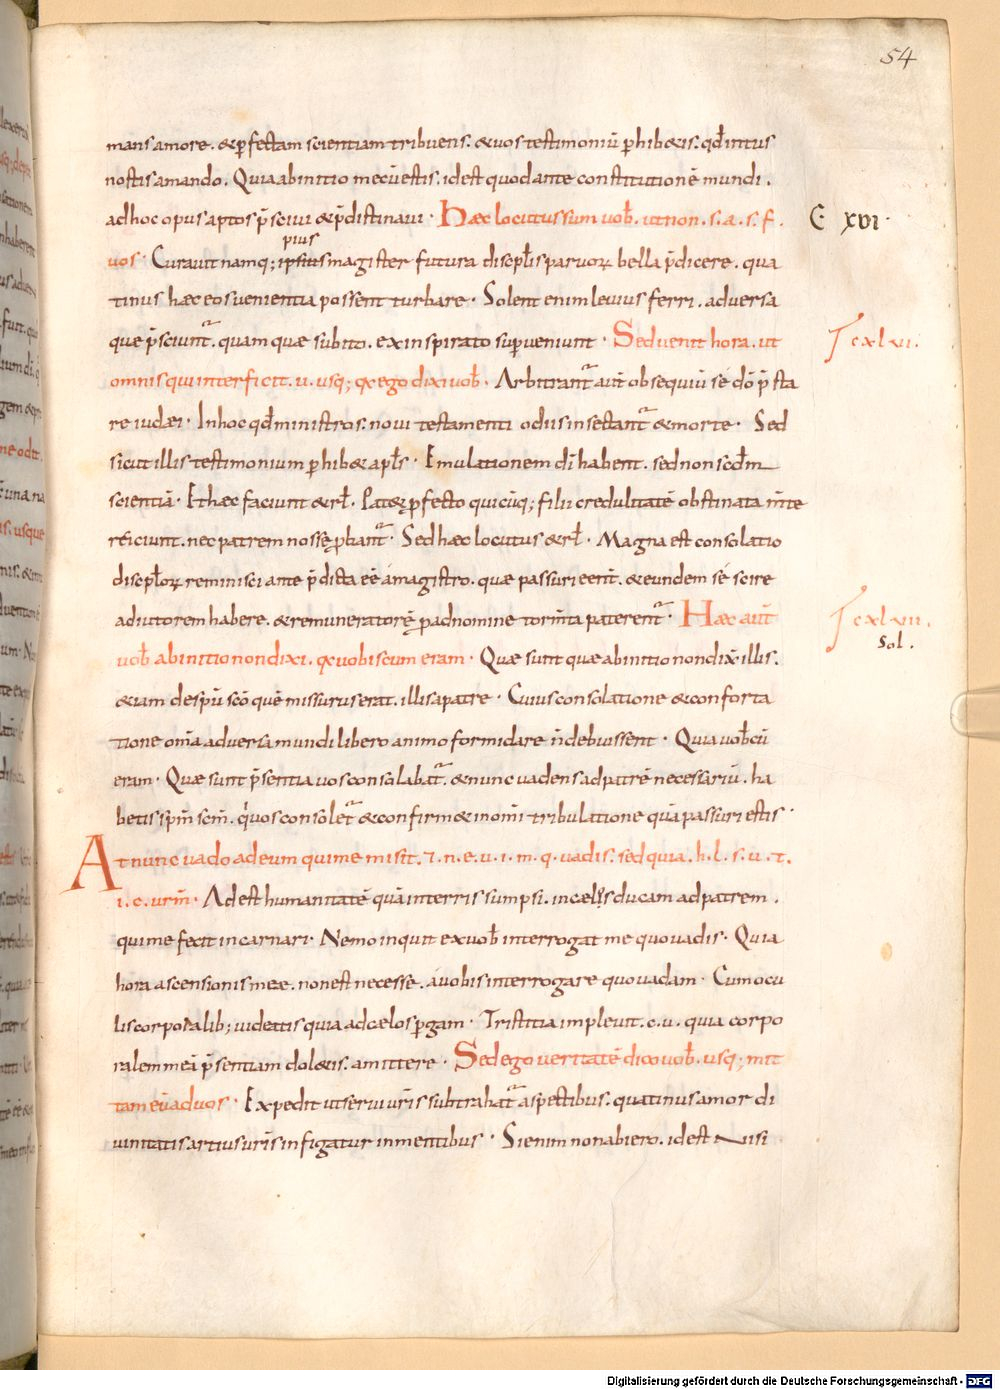 54
mans amore. & p̄fectam scientiam tribuens. & uos testimoniū phib&is. qđ intus
nostis amando. Quia ab initio mecū estis. id est quod ante constitutionē mundi.
ad hoc opus aptos p̄sciui & p̄distinaui. Haec locutus sum uob̄. ut non. s. a. s. f.
C xvi.
uos. Curauit namq; ipsius magister futura discipl̄is paruoꝝ bella p̄dicere. qua
pius
tinus haec eos uenientia possent turbare. Solent enim leuius ferri. aduersa
quę p̄sciunt᷑. quam quae subito. ex insperato supueniunt. Sed uenit hora. ut
cxlvi.
omnis qui interficit. u. usq; qx ego dixi uob̄. Arbitrant᷑ aut̄ obsequiū sé dō p̄sta
re iudęi. In hoc qđ ministros. noui testamenti odiis insectant᷑ & morte. Sed
sicut illis testimonium phib& apl̄s. Emulationem dī habent. sed non scđm
scientiā. Et haec faciunt & rl̄. Pat&ꝗ pfecto quicūq; filii credulitatē obstinata m̄te
reiciunt. nec patrem nosse pbant᷑. Sed haec locutus & rl̄. Magna est consolatio
discipl̄oꝝ reminisci ante p̄dicta eē á magistro. quae passuri eēnt. & eundem sé scire
adiutorem habere. & remuneratorē. p ad nomine torm̄ta paterent᷑. Haec aut̄
cxlvii.
uob̄ ab initio non dixi. qx uobiscum eram. Quae sunt quae ab initio non dix̄ illis.
Sol.
&iam de sp̄u scō quē missurus erat. illis a patre. Cuius consolatione & conforta
tione om̄a aduersa mundi libero animo formidare n̄ debuissent. Quia uob̄cū
eram. Quae sunt p̄sentia uos consolabat᷑. & nunc uadens ad patrē necessariū. ha
betis sp̄m scm̄. q̇ uos consolet᷑ & confirm& in om̄i tribulatione quā passuri estis.
At nunc uado ad eum qui me misit. 7. n. e. u. i. m. q. uadis. sed quia. h. l. s. u. t.
i. c. urm̄. Adest humanitatē quā in terris sumpsi. in caelis ducam ad patrem.
qui me fecit incarnari. Nemo inquit ex uob̄ interrogat me quo uadis. Quia
hora ascensionis meae. non est necesse. á uobis interrogare quo uadam. Cum ocu
lis corporalib; uidetis quia ad caelos pgam. Tristitia impleuit. c. u. quia corpo
ralem meā p̄sentiam dol&is. amittere. Sed ego ueritatē dico uob̄. usq; mit
tam eū ad uos. Expedit ut serui ur̄is subtrahat᷑ aspectibus. quatinus amor di
uinitatis artius ur̄is infigatur in mentibus. Si enim non abiero. id est Nisi
Digitalisierung gefördert durch die Deutsche Forschungsgemeinschaft - DFG